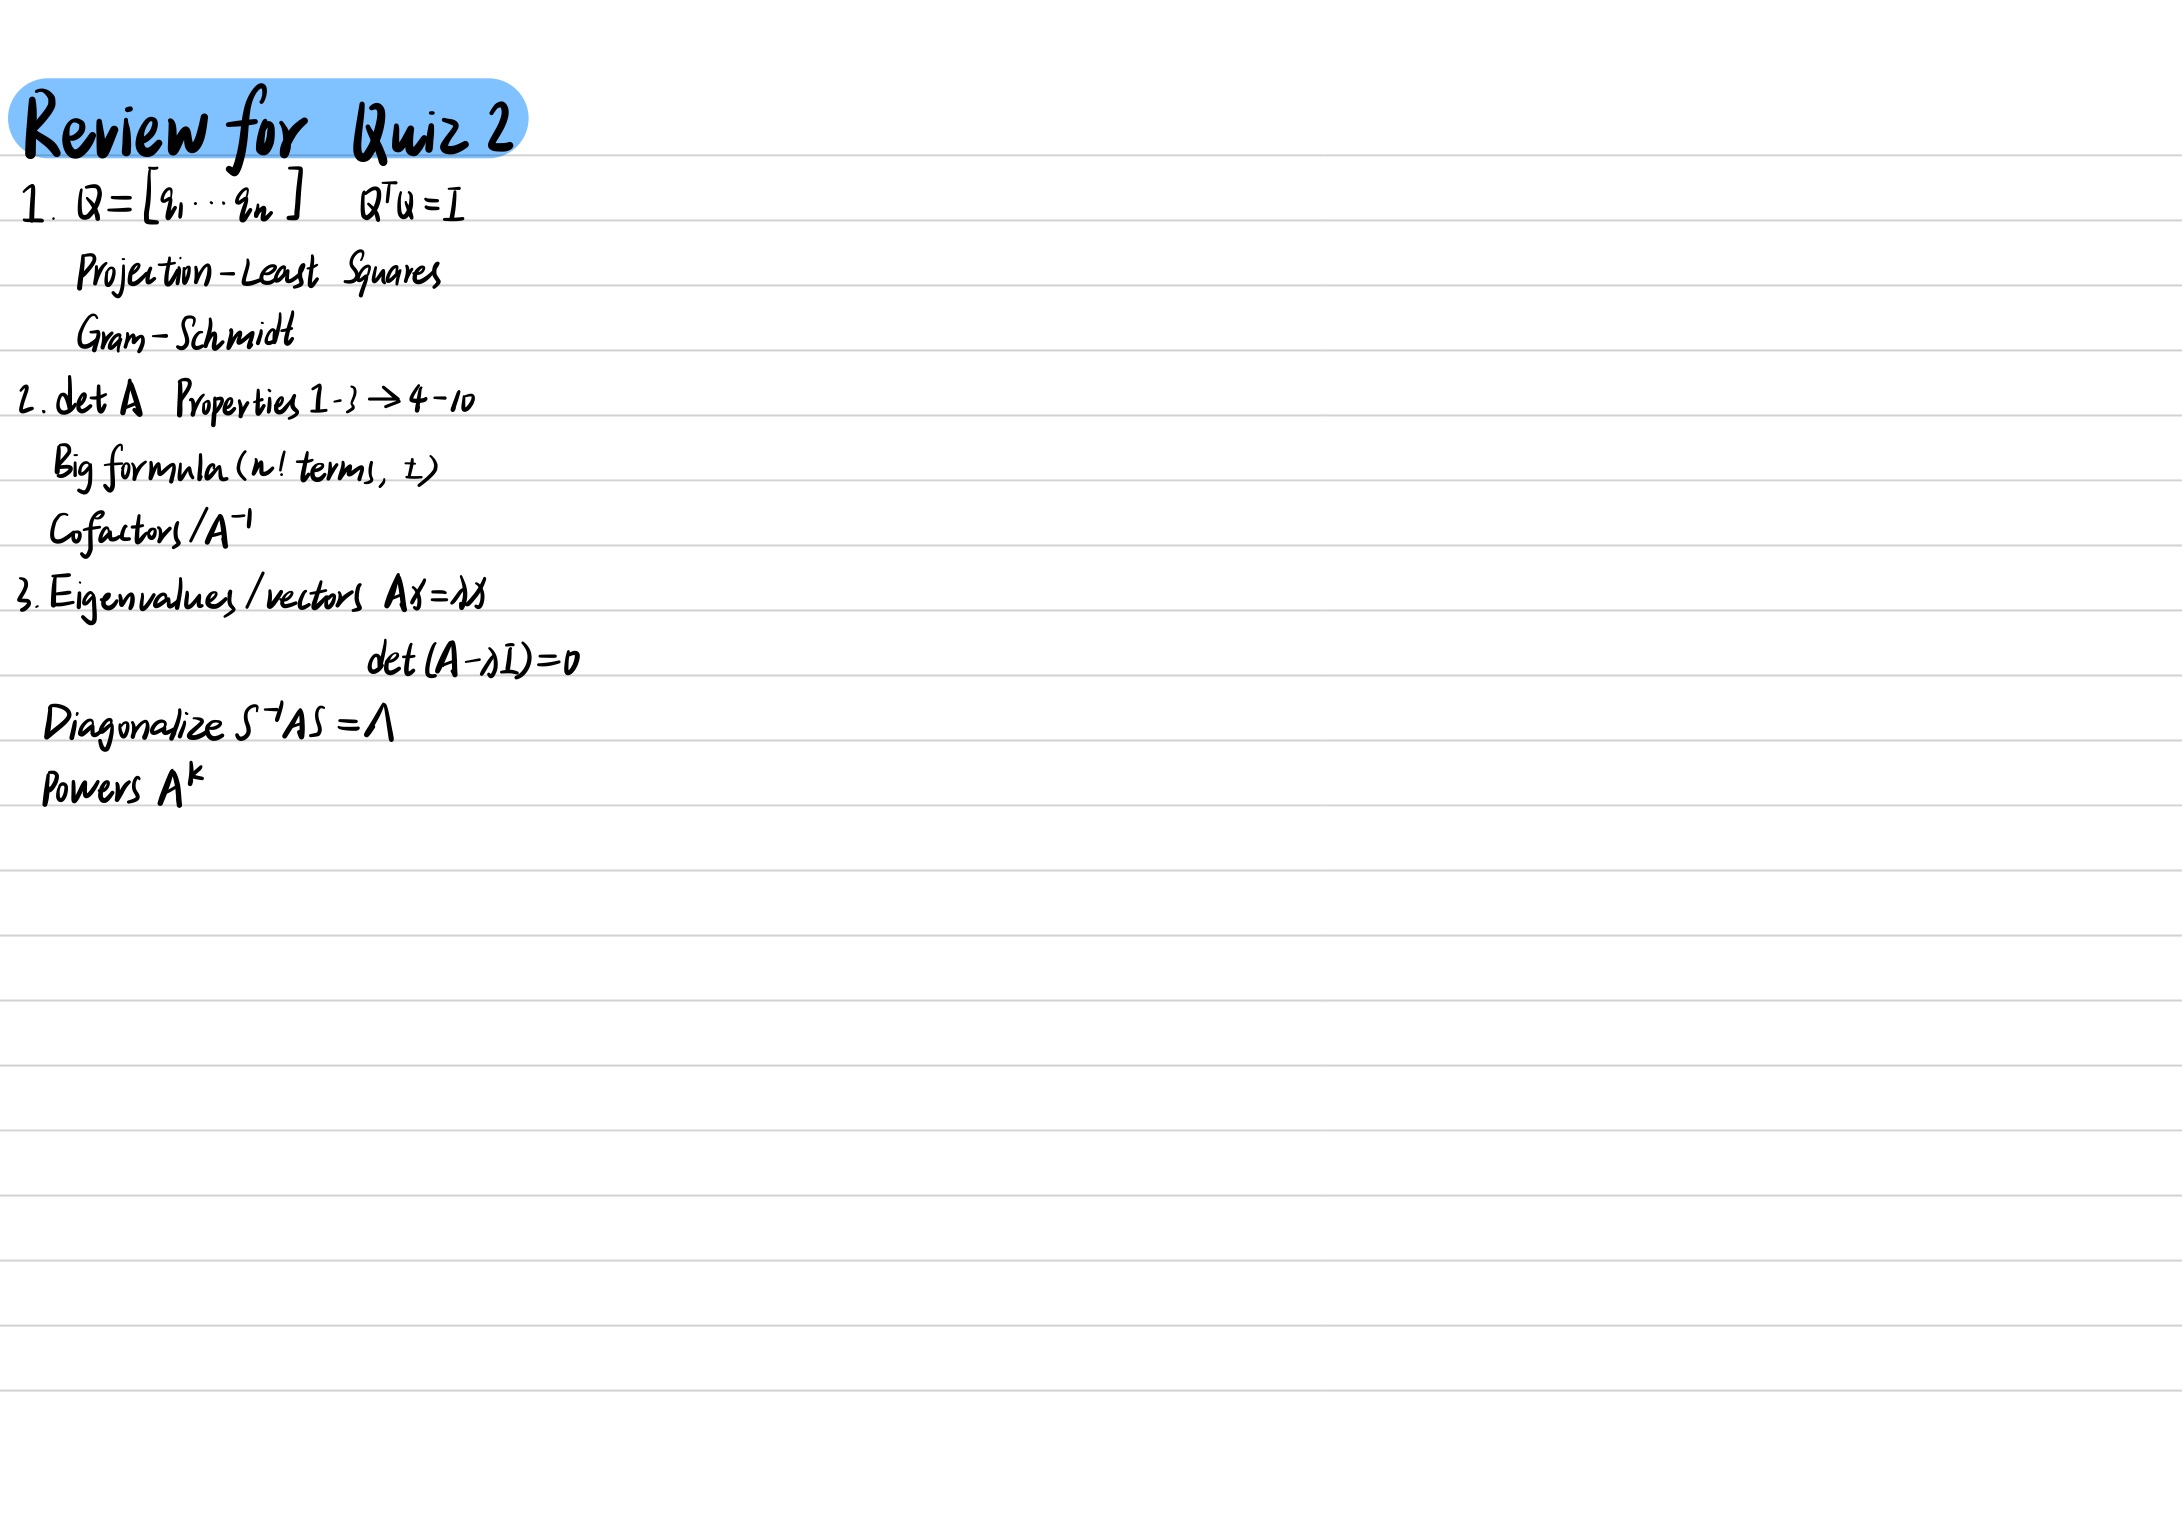 Review for Quiz 2
1. Q=[q₁···qₙ] QᵀQ=I
Projection-Least Squares
Gram-Schmidt
2. det A Properties 1-3→4-10
Big formula (n! terms, ±)
Cofactors/A⁻¹
3. Eigenvalues/vectors Ax=λx
det(A-λI)=0
Diagonalize S⁻¹AS=Λ
Powers Aᵏ